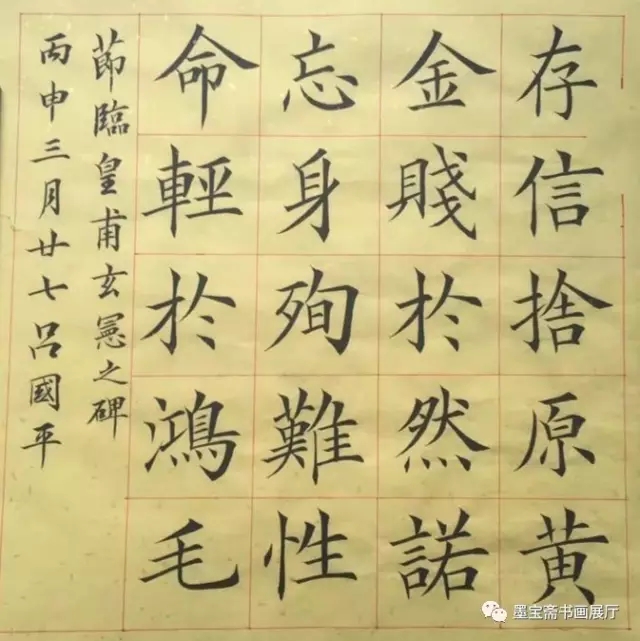 存信捨原黄
金賤於然諾
忘身殉難性
命輕於鴻毛
節臨皇甫玄憲之碑
丙申三月廿七呂國平
墨宝斋书画展厅